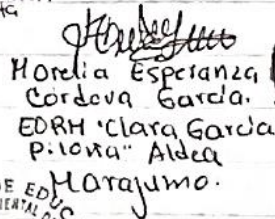 Morelia Esperanza
Cordova García.
EDRH "Clara García
Pilona" Aldea
Marajumo.